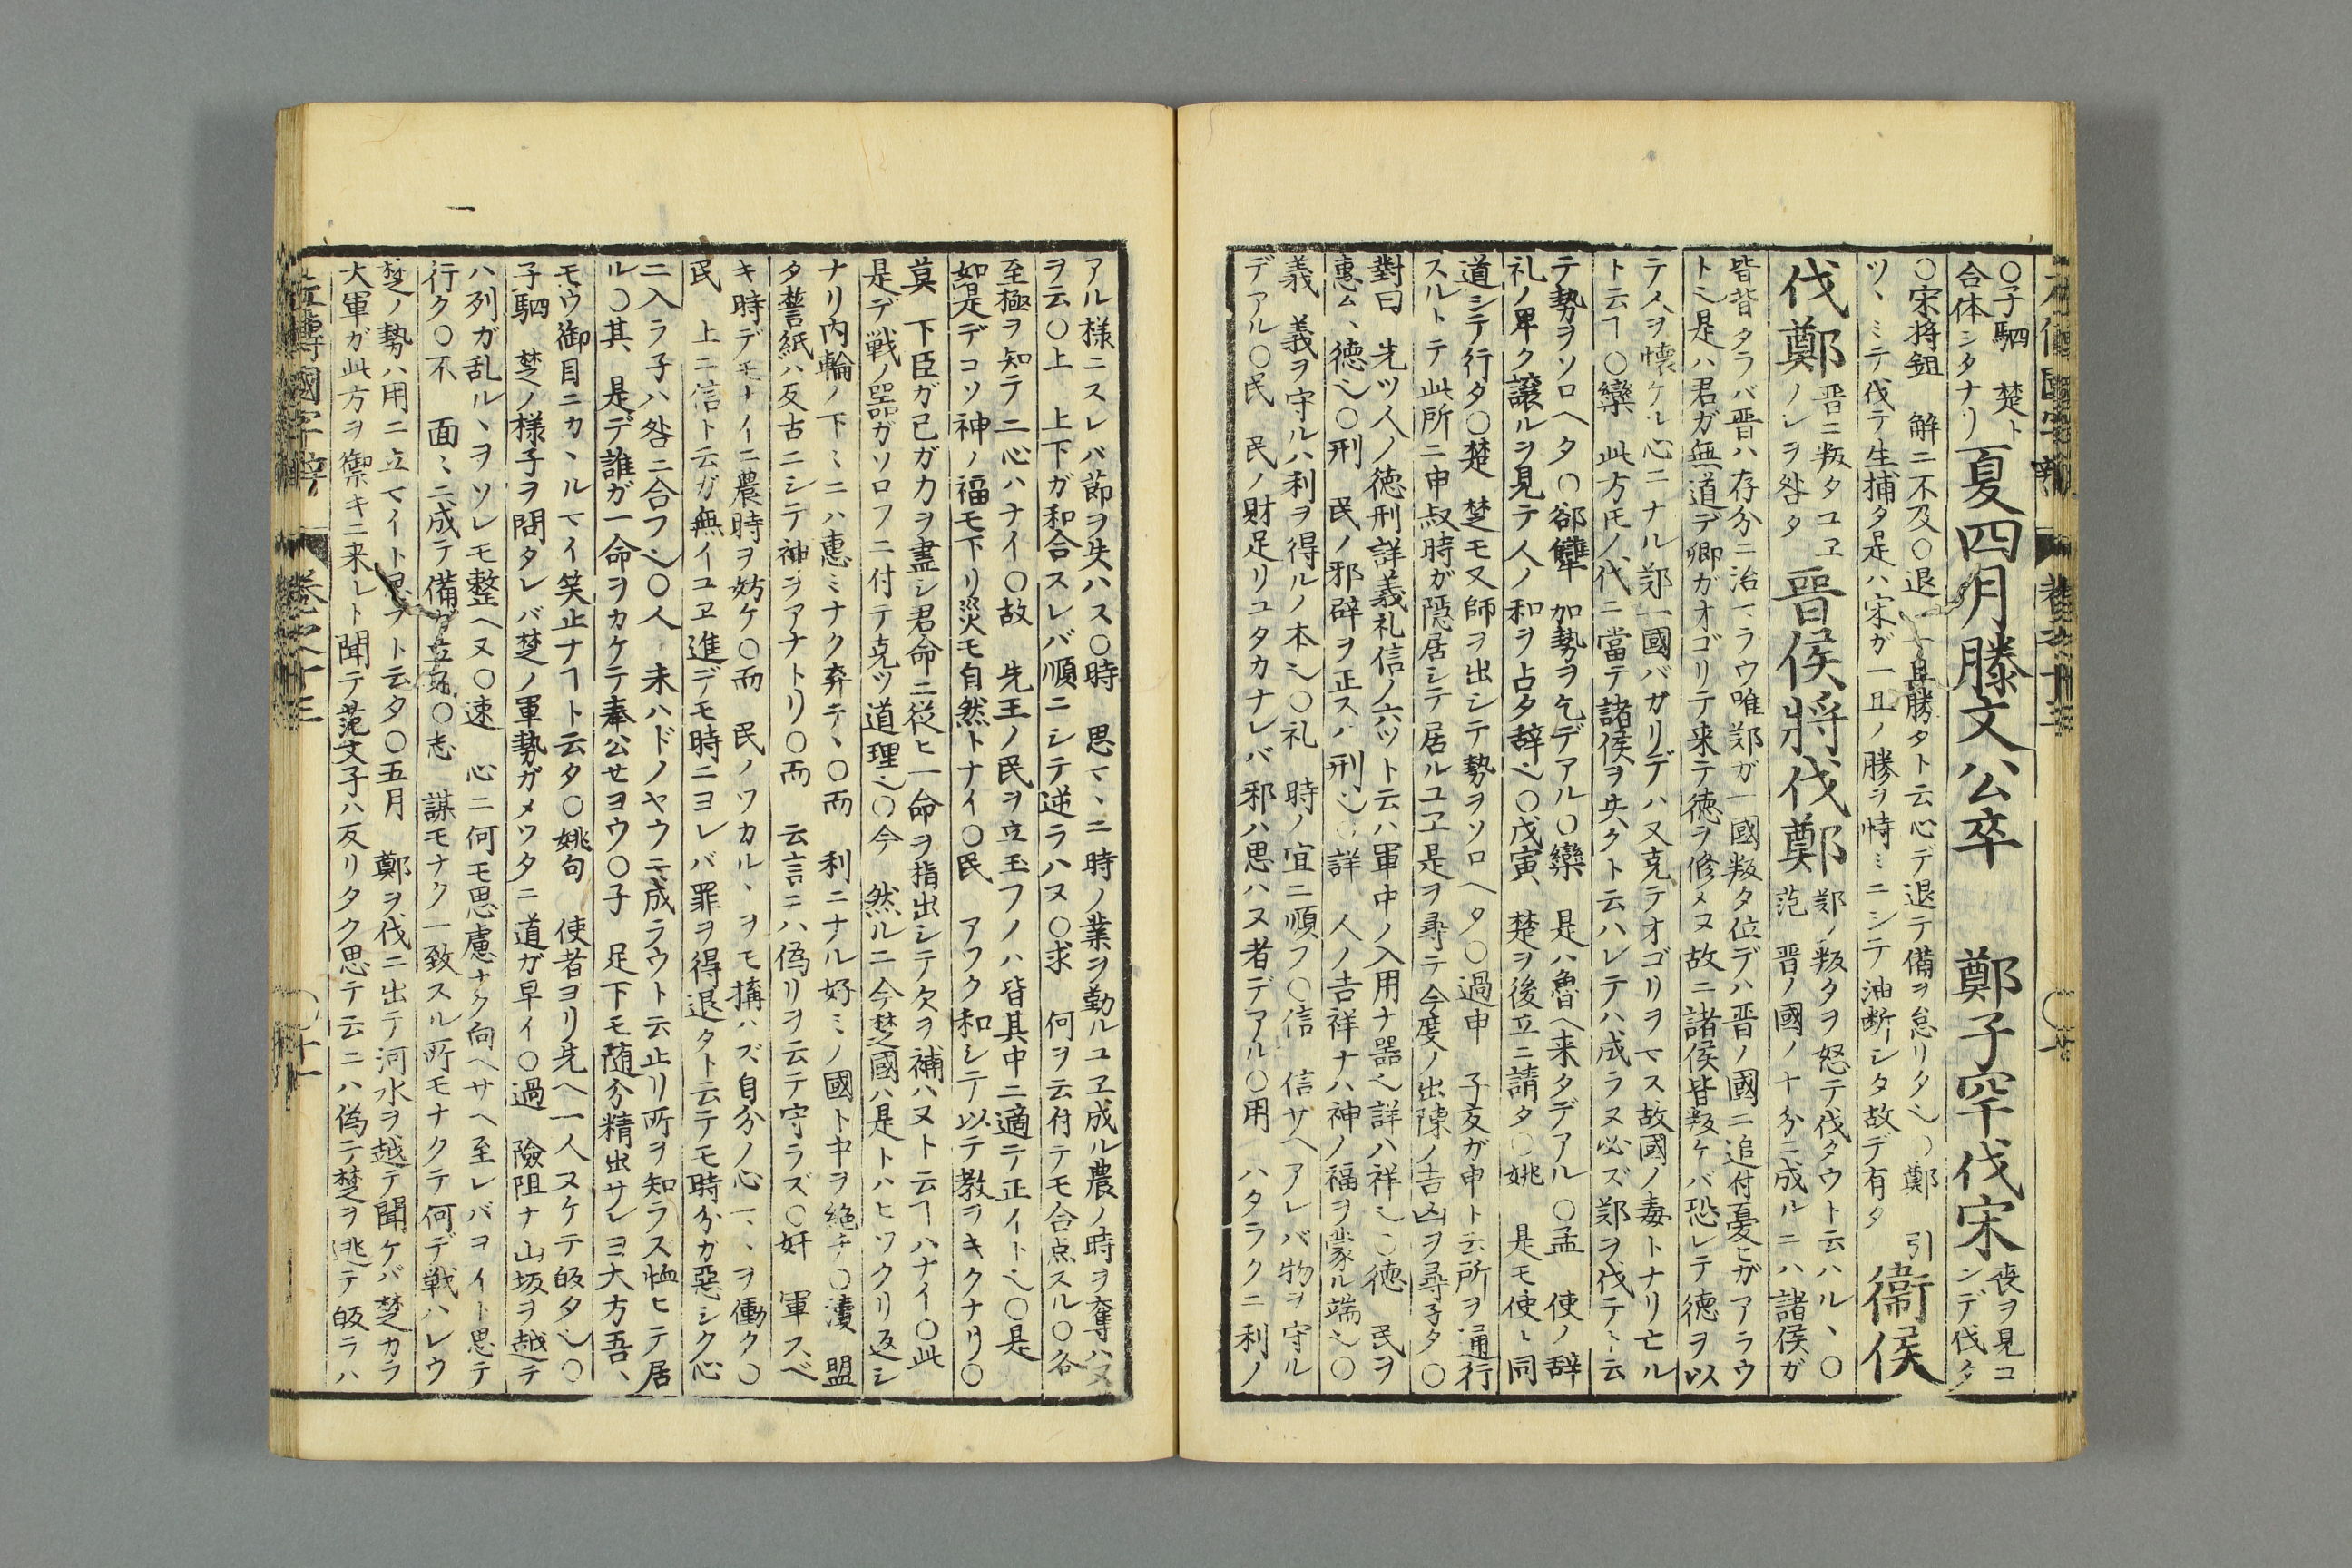 〇子駟　楚ト
合体シタナリ
夏四月滕文公卒　鄭子罕伐宋
喪ヲ見コ
ンデ伐タ
〇宋将鉏　解ニ不及〇退　一旦勝タト云心デ退テ備ヲ怠リタ也〇鄭　引
ツヽミテ伐テ生捕タ是ハ宋ガ一旦ノ勝ヲ恃ミニシテ油断シタ故デ有タ
衞侯
伐鄭
晋ニ叛タユヱ
ノレヲ咎タ
晉侯將伐鄭
鄭ノ叛タヲ怒テ伐タウト云ハルヽ〇
范　晋ノ國ノ十分ニ成ルニハ諸侯ガ
皆背タラバ晋ハ存分ニ治ーラウ唯鄭ガ一國叛タ位デハ晋ノ國ニ追付憂ヒガアラウ
ト也是ハ君ガ無道デ卿ガオゴリテ来テ徳ヲ修メヌ故ニ諸侯皆叛ケバ恐レテ徳ヲ以
テ人ヲ懐ケル心ニナル鄭一國バカリデハ又克テオゴリヲマス故國ノ毒トナリ亡ル
ト云ヿ〇欒　此方𪜈ノ代ニ當テ諸侯ヲ失クト云ハレテハ成ラヌ必ズ鄭ヲ伐テト云
テ勢ヲソロヘタ〇郤犨　加勢ヲ乞デアル〇欒　是ハ魯ヘ来タデアル〇孟　使ノ辞
礼ノ卑ク譲ルヲ見テ人ノ和ヲ占タ辞也〇戊寅　楚ヲ後立ニ請タ〇姚　是モ使ト同
道シテ行タ〇楚　楚モ又師ヲ出シテ勢ヲソロヘタ〇過申　子反ガ申ト云所ヲ通行
スルトテ此所ニ申叔時ガ隠居シテ居ルユヱ是ヲ尋テ今度ノ出陳ノ吉凶ヲ尋子タ〇
對曰　先ツ人ノ徳刑詳義礼信ノ六ツト云ハ軍中ノ入用ナ器也詳ハ祥也〇徳　民ヲ
惠ムヽ徳也〇刑　民ノ邪辟ヲ正スハ刑也〇詳　人ノ吉祥ナハ神ノ福ヲ蒙ル端也〇
義　義ヲ守ルハ利ヲ得ルノ本也〇礼　時ノ宜ニ順フ〇信　信サヘアレバ物ヲ守ル
デアル〇民　民ノ財足リユタカナレバ邪ハ思ハヌ者デアル〇用　ハタラクニ利ノ
アル様ニスレバ節ヲ失ハス〇時　思マヽニ時ノ業ヲ勤ルユヱ成ル農ノ時ヲ奪ハヌ
ヲ云〇上　上下ガ和合スレバ順ニシテ逆ラハヌ〇求　何ヲ云付テモ合点スル〇各
至極ヲ知テ二心ハナイ〇故　先王ノ民ヲ立玉フノハ皆其中ニ適テ正イト也〇是
如是デコソ神ノ福モ下リ災モ自然トナイ〇民　アツク和シテ以テ教ヲキクナリ〇
莫　下臣ガ己ガ力ヲ盡シ君命ニ従ヒ一命ヲ指出シテ欠ヲ補ハヌト云ヿハナイ〇此
是デ戦ノ器ガソロフニ付テ克ツ道理也〇今　然ルニ今楚國ハ是トハヒツクリ返シ
ナリ内輪ノ下ミニハ惠ミナク弃テヽ〇而　利ニナル好ミノ國ト中ヲ絶チ〇瀆　盟
タ誓紙ハ反古ニシテ神ヲアナトリ〇而　云言ニハ偽リヲ云テ守ラズ〇奸　軍スベ
キ時デモナイニ農時ヲ妨ケ〇而　民ノツカルヽヲモ搆ハズ自分ノ心一ヽヲ働ク〇
民　上ニ信ト云ガ無イユヱ進デモ時ニヨレバ罪ヲ得退タト云テモ時分ガ惡シク心
ニ入ラ子ハ咎ニ合フ也〇人　末ハドノヤウニ成ラウト云止リ所ヲ知ラス恤ヒテ居
ル〇其　是デ誰ガ一命ヲカケテ奉公せヨウ〇子　足下モ随分精出サレヨ大方吾ハ
モウ御目ニカヽルマイ笑止ナヿト云タ〇姚句　使者ヨリ先ヘ一人ヌケテ皈タ也〇
子駟　楚ノ様子ヲ問タレバ楚ノ軍勢ガメツタニ道ガ早イ〇過　險阻ナ山坂ヲ越テ
ハ列ガ乱ルヽヲソレモ整ヘヌ〇速　心ニ何モ思慮ナク向ヘサヘ至レバヨイト思テ
行ク〇不　面ミニ成テ備ガ立ヌ〇志　謀モナク一致スル所モナクテ何デ戦ハレウ
楚ノ勢ハ用ニ立マイト思フト云タ〇五月　鄭ヲ伐ニ出テ河水ヲ越テ聞ケバ楚カラ
大軍ガ此方ヲ禦キニ来レト聞テ范文子ハ反リタク思テ云ニハ偽テ楚ヲ逃テ皈ラハ
左傳國字辯　卷之十三　〇十一